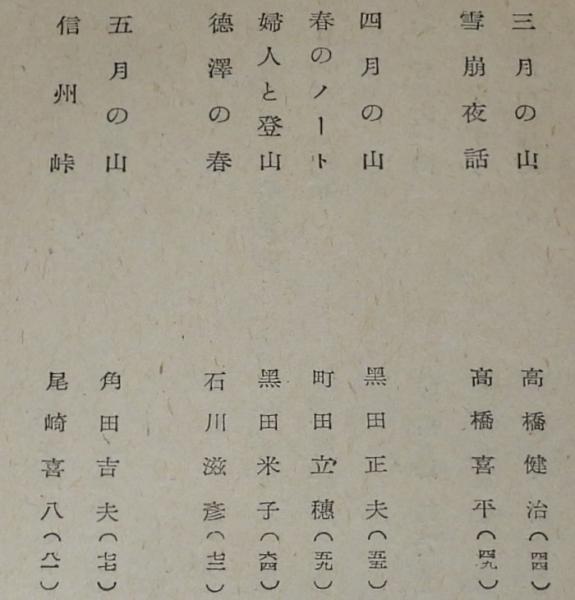 三月の山 高橋健治(四四)
雪崩夜話 高橋喜平(四九)
四月の山 黑田正夫(五五)
春のノート 町田立穗(五九)
婦人と登山 黑田米子(六四)
德澤の春 石川滋彥(七二)
五月の山 角田吉夫(七七)
信州峠 尾崎喜八(八一)